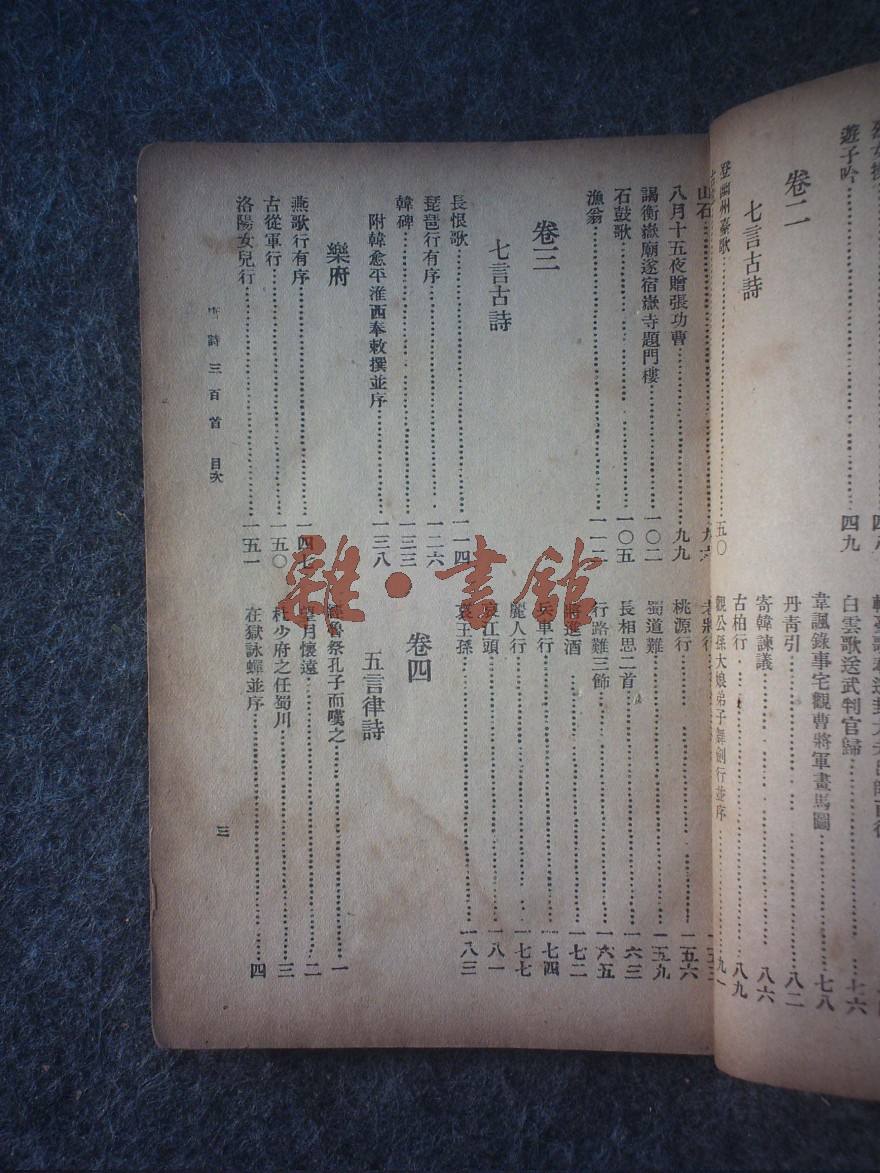 遊子吟……四九
卷二
七言古詩
登幽州臺歌……五〇
白雲歌送武判官歸……七六
韋諷錄事宅觀曹將軍畫馬圖……七八
丹青引……八二
寄韓諫議……八六
古柏行……八九
觀公孫大娘弟子舞劍行並序……九一
山石
八月十五夜贈張功曹……九九
謁衡嶽廟遂宿嶽寺題門樓……一〇二
石鼓歌……一〇五
漁翁……一一二
卷三
七言古詩
長恨歌……一一四
琵琶行有序……一二六
韓碑……一三三
附韓愈平淮西奉敕撰並序……一三八
樂府
燕歌行有序……一四七
古從軍行……一五〇
洛陽女兒行……一五一
老將行……一五三
桃源行……一五六
蜀道難……一五九
長相思二首……一六三
行路難三篇……一六五
將進酒……一七二
兵車行……一七四
麗人行……一七七
哀江頭……一八一
哀王孫……一八三
卷四
五言律詩
經魯祭孔子而嘆之……一
望月懷遠……二
杜少府之任蜀川……三
在獄詠蟬並序……四
詩三百首 目次
三
雜·書館